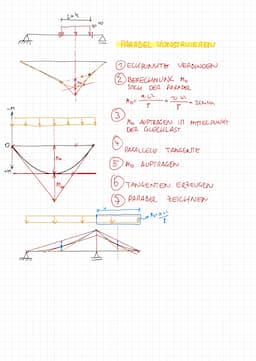 PARABEL KONSTRUIEREN
① ECKPUNKTE VERBINDEN
② BERECHNUNG M₀
STICH DER PARABEL
③
M₀ AUFTRAGEN IM MITTELPUNKT
DER GLEICHLAST
④
PARALLELE TANGENTE
⑤ M₀ AUFTRAGEN
⑥ TANGENTEN ERZEUGEN
⑦ PARABEL ZEICHNEN
-M
0
+M
M₀
M₀